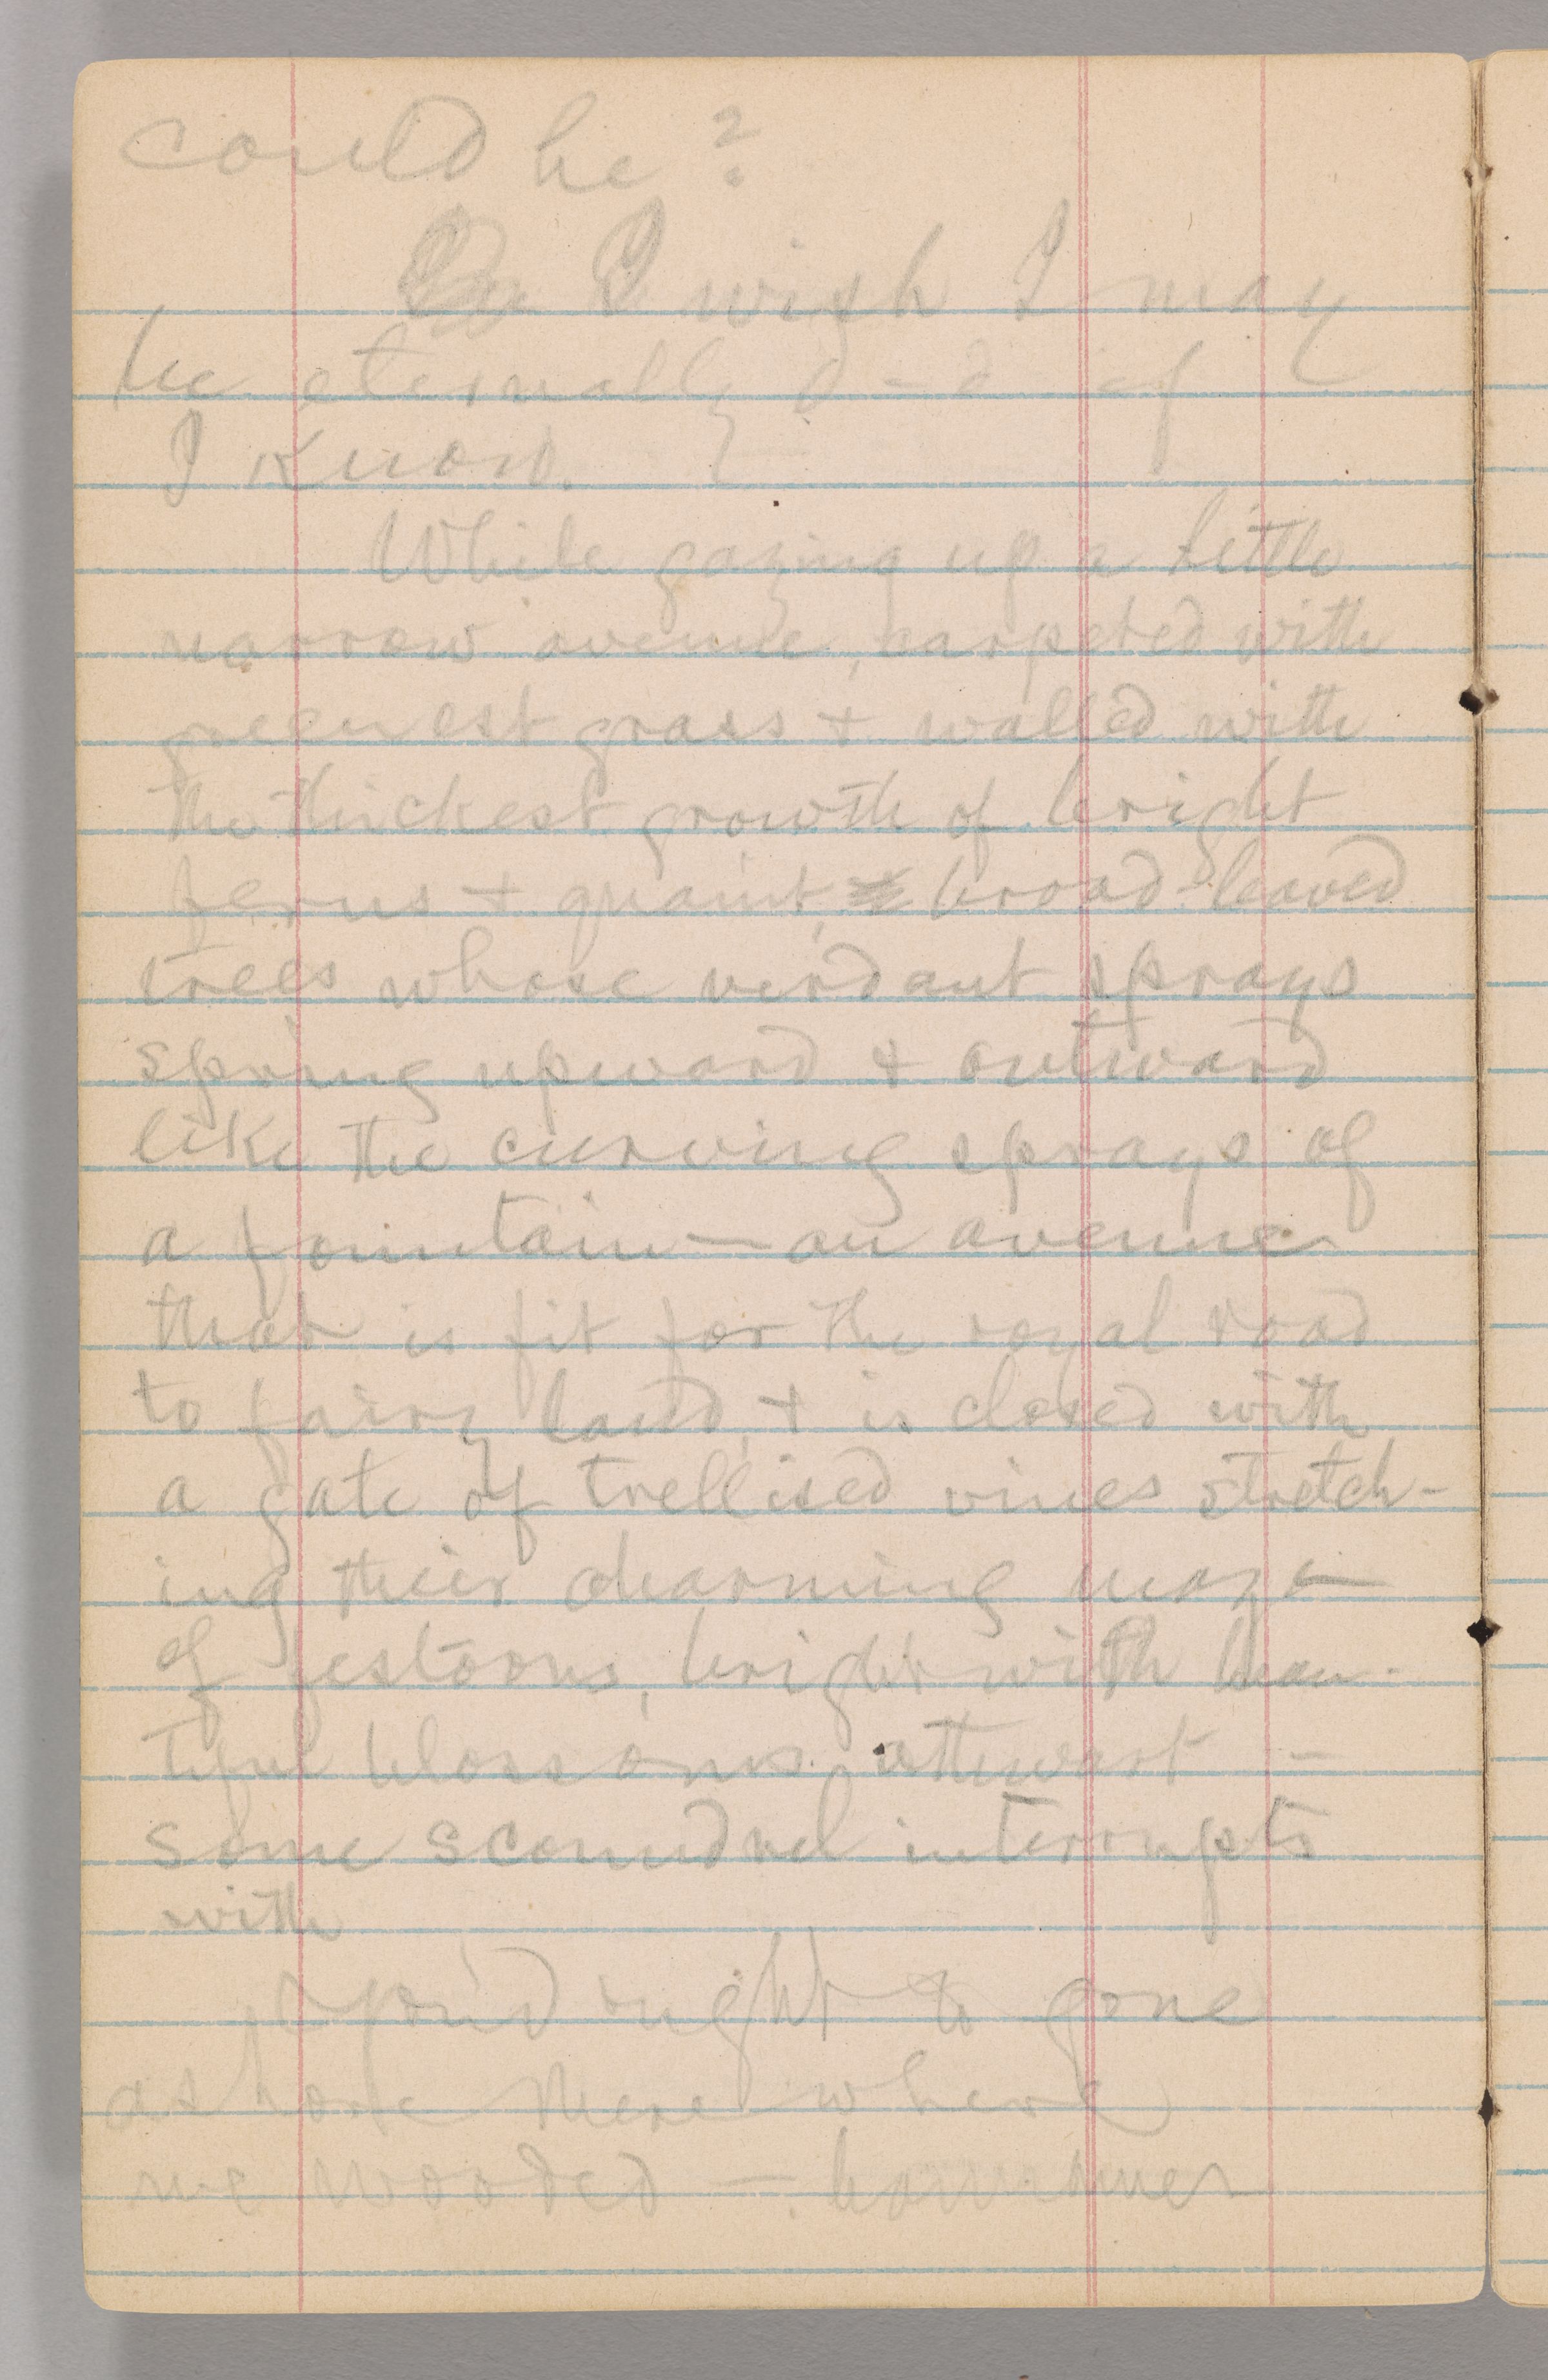 could he?
I wish I may
be eternally d–d if
I know.
While gazing up a little
narrow avenue, carpeted with
greenest grass & walled with
the thickest growth of bright
ferns & quaint, broad-leaved
trees whose verdant sprays
spring upward & outward
like the curving sprays of
a fountain — an avenue
that is fit for the royal road
to fairy land, & is closed with
a gate of trellised vines stretch-
ing their charming maze
of festoons, bright with beau-
tiful blossoms, athwart —
some scoundrel interrupts
with
You'd ought to gone
ashore there where
we wooded —